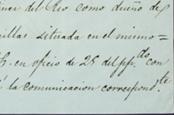 del Rio como dueño de
illas situada en el mismo=
en oficio de 25 del pp.do con
la comunicacion correspond.te